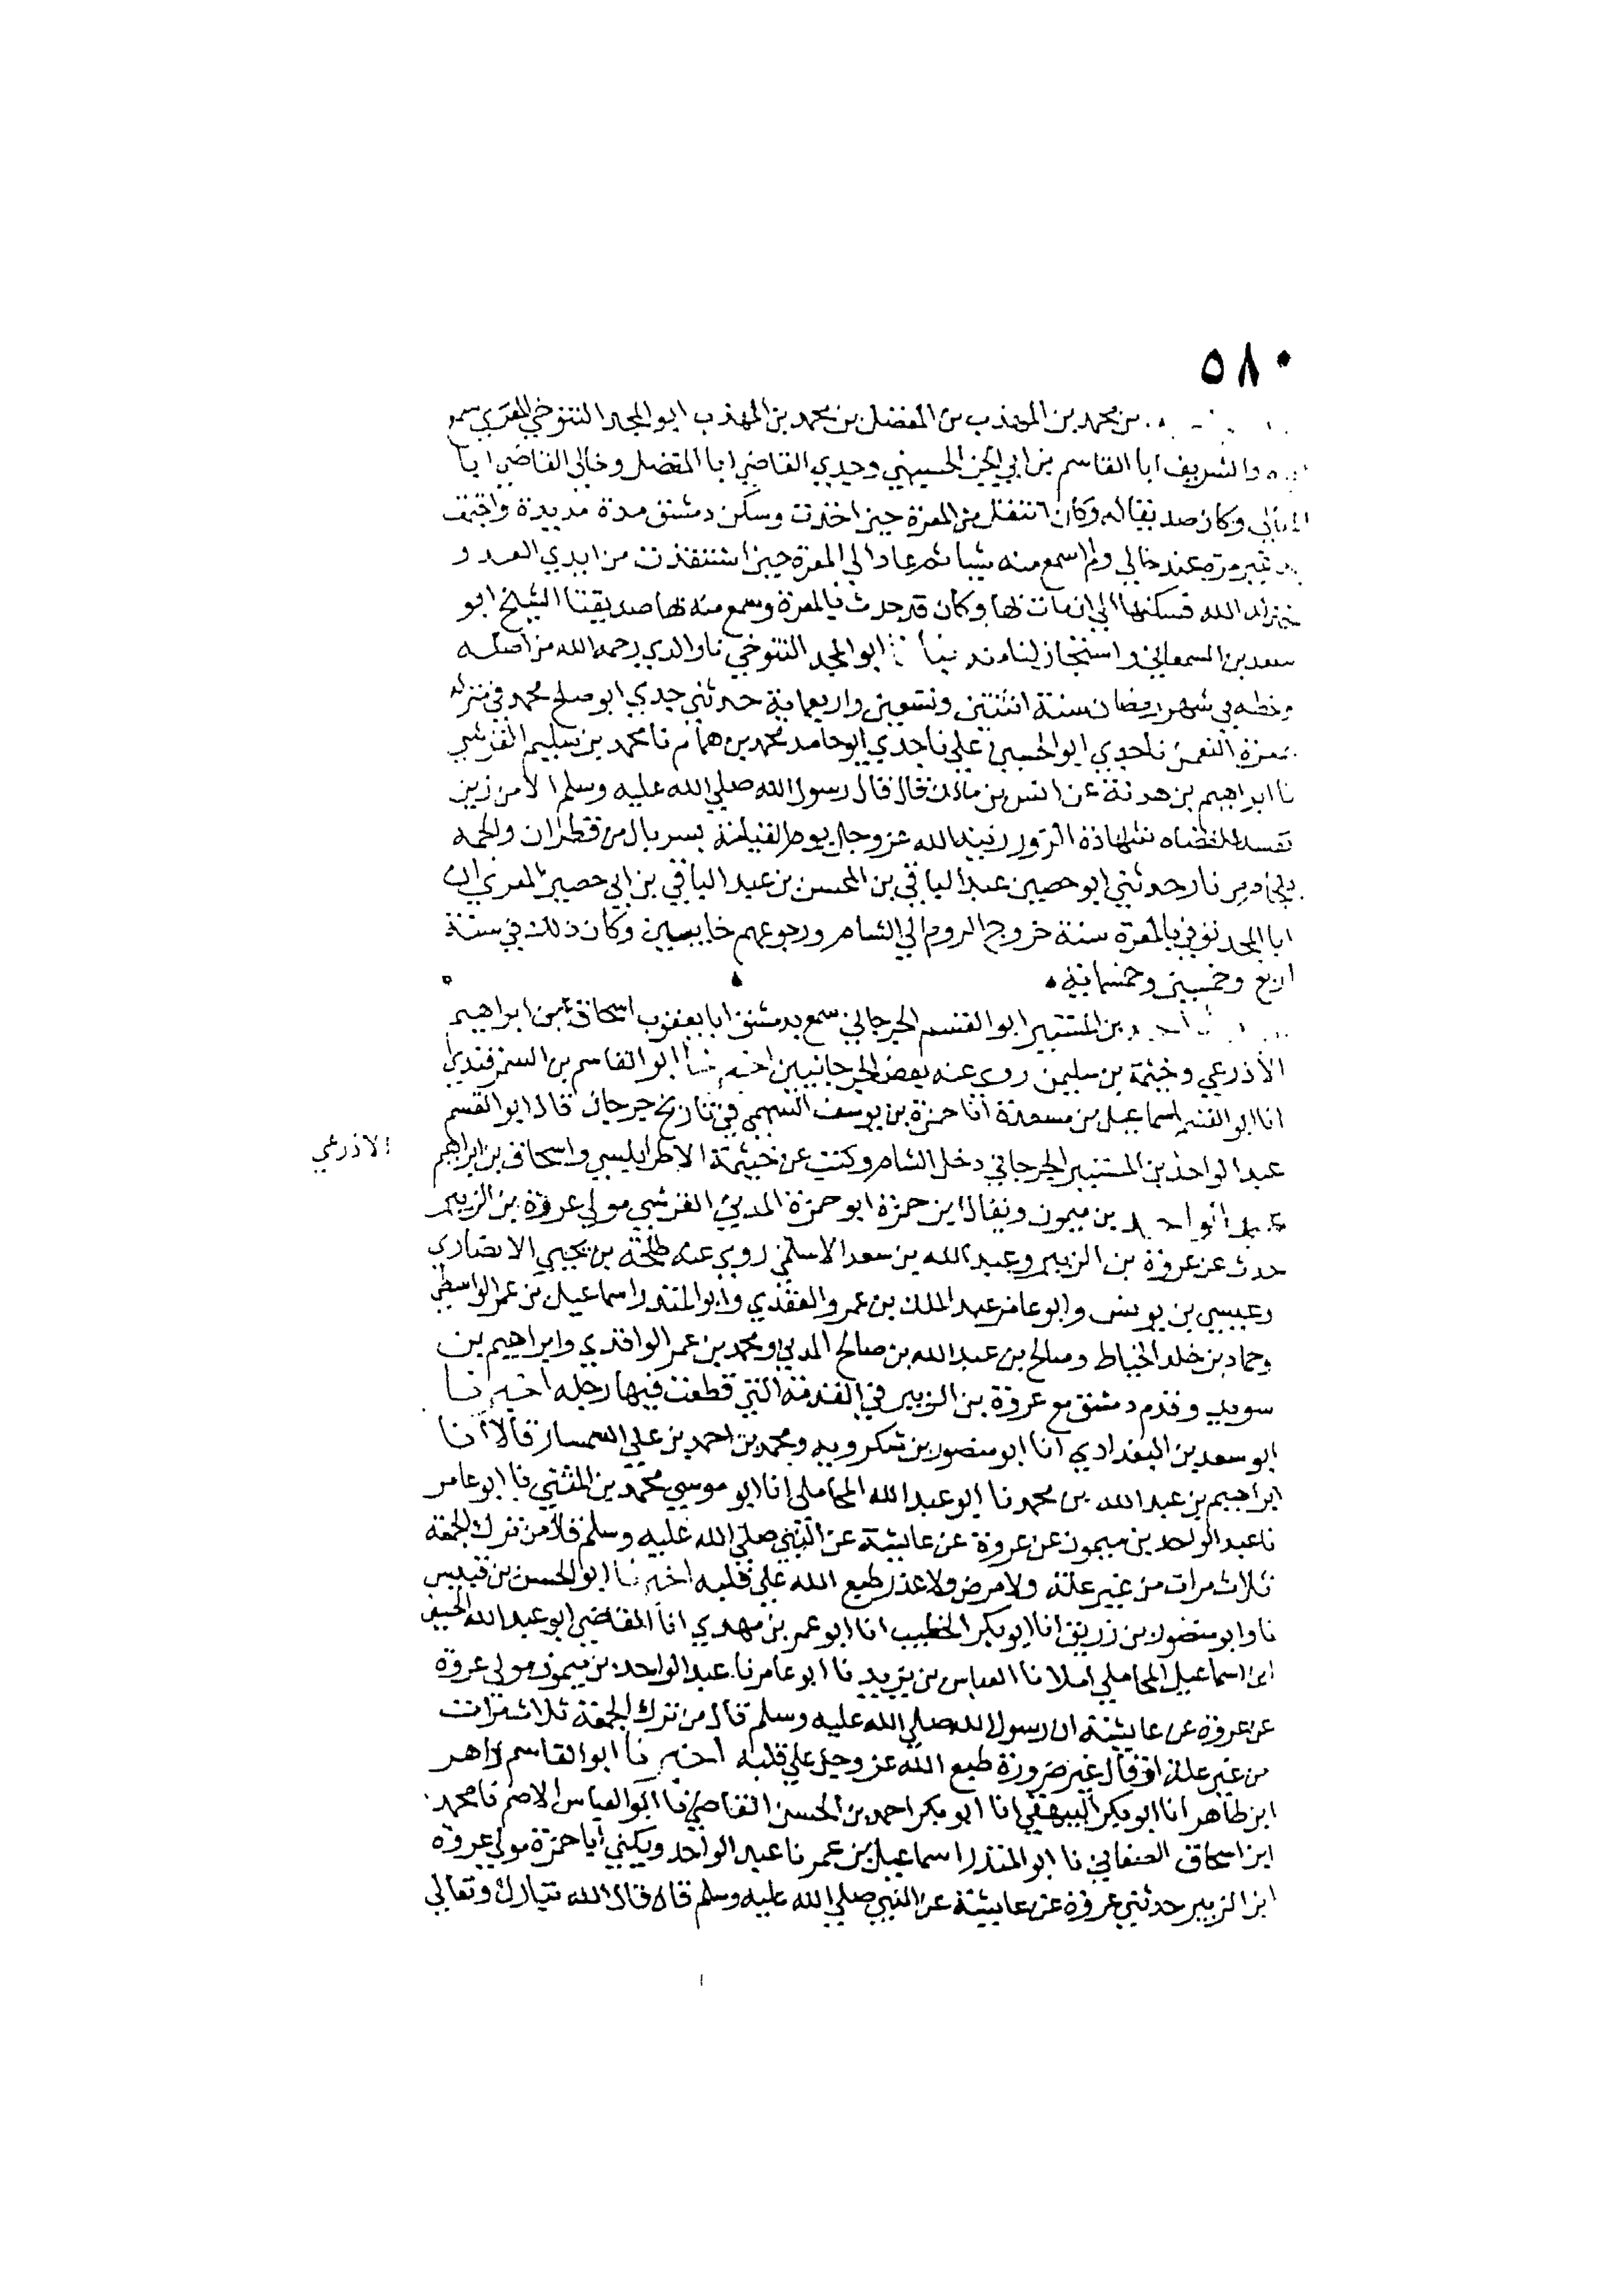 ٥٨٠
بن محمد بن المهذب بن المفضل بن محمد بن المهذب ابو المجد التنوخي المعري سمع
والشريف ابا القاسم بن ابي الجن الحسيني وجدي القاضي ابا المفضل وخالي القاضي ابا
المعالي وكان صديقا له وكان انتقل من المعرة حين اخذت وسكن دمشق مدة مديدة واجتمعت
به غير مرة عند خالي ولم اسمع منه شيا ثم عاد الي المعرة حين استنقذت من ايدي العدو
الله فسكنها الي ان مات بها وكان قد حدث بالمعرة وسمع منه بها صديقنا الشيخ ابو
سعد بن السمعاني واستجاز لنا منه ابو المجد التنوخي نا والدي رحمه الله من اصله
وخطه في شهر رمضان سنة اثنتين وتسعين واربعماية حدثني جدي ابو صلح محمد في منزله
بمعرة النعمن نا جدي ابو الحسين علي نا جدي ابو حامد محمد بن همام نا محمد بن سليم القرشي
نا ابراهيم بن هدبة عن انس بن مالك قال قال رسول الله صلي الله عليه وسلم الا من زين
نفسه للقضاه بشهادة الزور زينه الله عز وجل يوم القيامة بسربال من قطران والجمه
بلجام من نار حدثني ابو حصين عبد الباقي بن المحسن بن عبد الباقي بن ابي حصين المعري ان
ابا المجد توفي بالمعرة سنة خروج الروم الي الشام ورجوعهم خايبين وكان ذلك في سنة
اربع وخمسين وخمسماية
بن المستنير ابو القسم الجرجاني سمع بدمشق ابا يعقوب اسحاق بن ابراهيم
الاذرعي وخيثمة بن سليمن روي عنه بعض الجرجانيين اخبرنا ابو القاسم بن السمرقندي
انا ابو القسم اسماعيل بن مسعدة انا حمزة بن يوسف السهمي في تاريخ جرجان قال ابو القسم
عبد الواحد بن المستنير الجرجاني دخل الشام وكتب عن خيثمة الاطرابلسي واسحاق بن ابراهيم
الاذرعي
عبد الواحد بن ميمون ويقال ابن حمزة ابو حمزة المديني القرشي مولي عروة بن الزبير
حدث عن عروة بن الزبير وعبد الله بن سعد الاسلمي روي عنه طلحة بن يحيي الانصاري
وعيسي بن يونس وابو عامر عبد الملك بن عمرو العقدي وابو المنذر اسماعيل بن عمر الواسطي
وحماد بن خلد الخياط وصالح بن عبد الله بن صالح المدني ومحمد بن عمر الواقدي وابراهيم بن
سويد وقدم دمشق مع عروة بن الزبير في القدمة التي قطعت فيها رجله اخبرنا
ابو سعد بن البغدادي انا ابو منصور بن شكرويه ومحمد بن احمد بن علي السمسار قالا انا
ابراهيم بن عبد الله بن محمد نا ابو عبد الله المحاملي انا ابو موسي محمد بن المثني نا ابو عامر
نا عبد الواحد بن ميمون عن عروة عن عايشة عن النبي صلي الله عليه وسلم قال من ترك الجمعة
ثلاث مرات من غير علة ولا مرض ولا عذر طبع الله علي قلبه اخبرنا ابو الحسن بن قبيس
نا وابو منصور بن زريق انا ابو بكر الخطيب انا ابو عمر بن مهدي انا القاضي ابو عبد الله الحسين
ابن اسماعيل المحاملي املا نا العباس بن يزيد نا ابو عامر نا عبد الواحد بن ميمون مولي عروة
عن عروة عن عايشة ان رسول الله صلي الله عليه وسلم قال من ترك الجمعة ثلاث مرات
من غير علة او قال غير ضرورة طبع الله عز وجل علي قلبه اخبرنا ابو القاسم زاهر
ابن طاهر انا ابو بكر البيهقي انا ابو بكر احمد بن الحسن القاضي نا ابو العباس الاصم نا محمد
ابن اسحاق الصغاني نا ابو المنذر اسماعيل بن عمر نا عبد الواحد ويكني ابا حمزة مولي عروة
ابن الزبير حدثني عروة عن عايشة عن النبي صلي الله عليه وسلم قال قال الله تبارك وتعالي